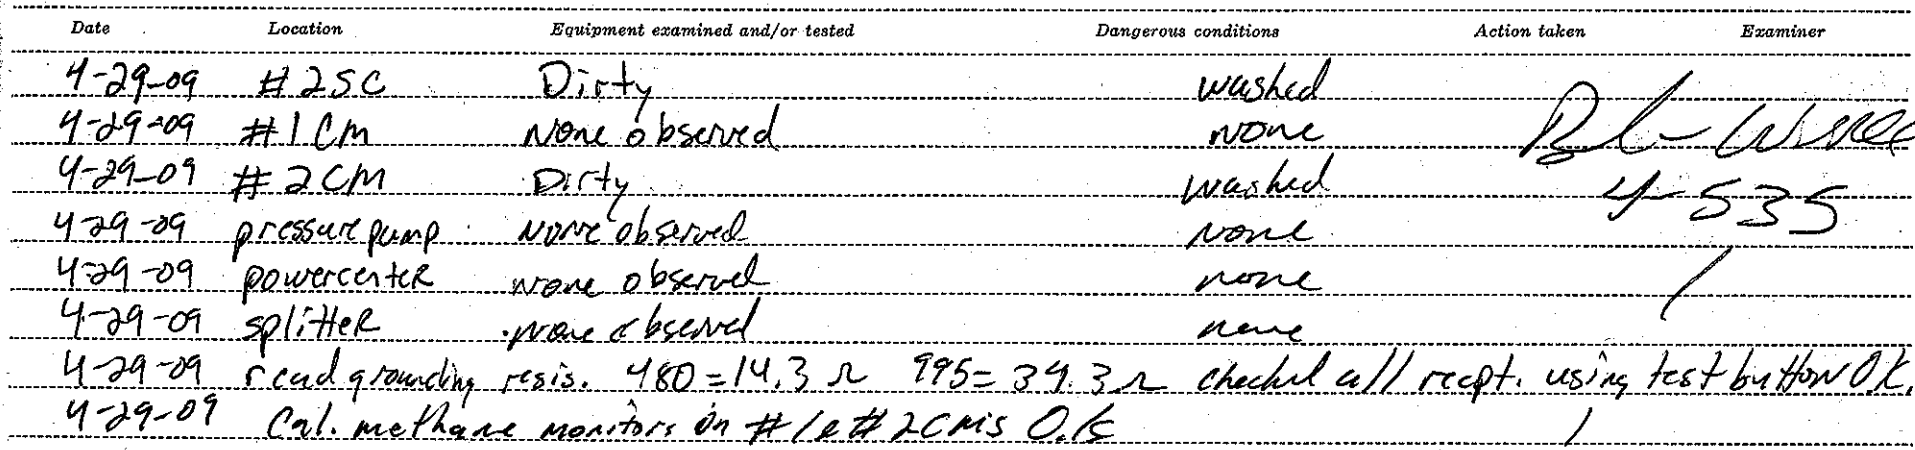 Date Location Equipment examined and/or tested Dangerous conditions Action taken Examiner
4-29-09 #2SC Dirty washed
4-29-09 #1CM None observed none
4-29-09 #2CM Dirty washed
4-535
4-29-09 pressure pump None observed none
4-29-09 powercenter none observed none
4-29-09 splitter none observed none
4-29-09 read grounding resis. 480=14.3 Ω 995=39.3 Ω checked all recpt. using test button OK.
4-29-09 Cal. methane monitors on #1 & #2 CMs O.K